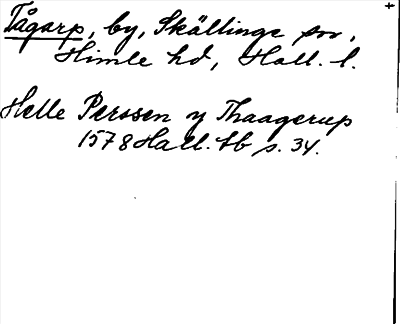 Tågarp, by, Skällinge sn,
Himle hd, Hall. l.
Helle Perssen y Thaagerup
1578 Hall. tb s. 34.